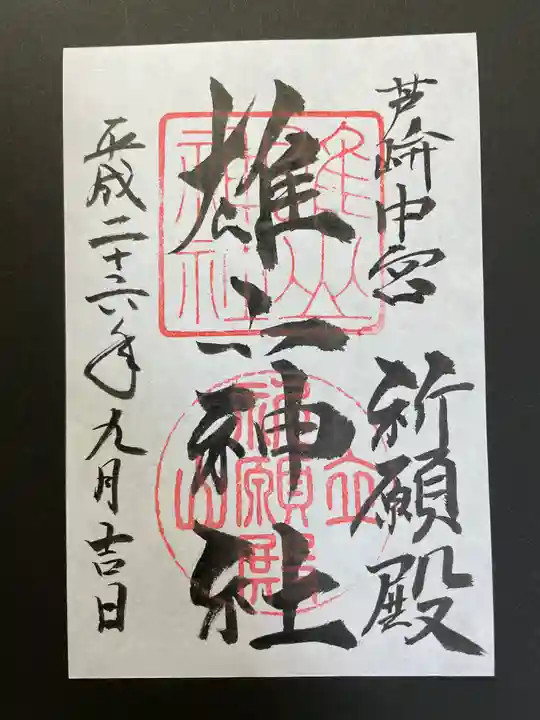 芦峅中宮
祈願殿
雄山神社
平成二十六年九月吉日
雄山神社
立山
祈願殿